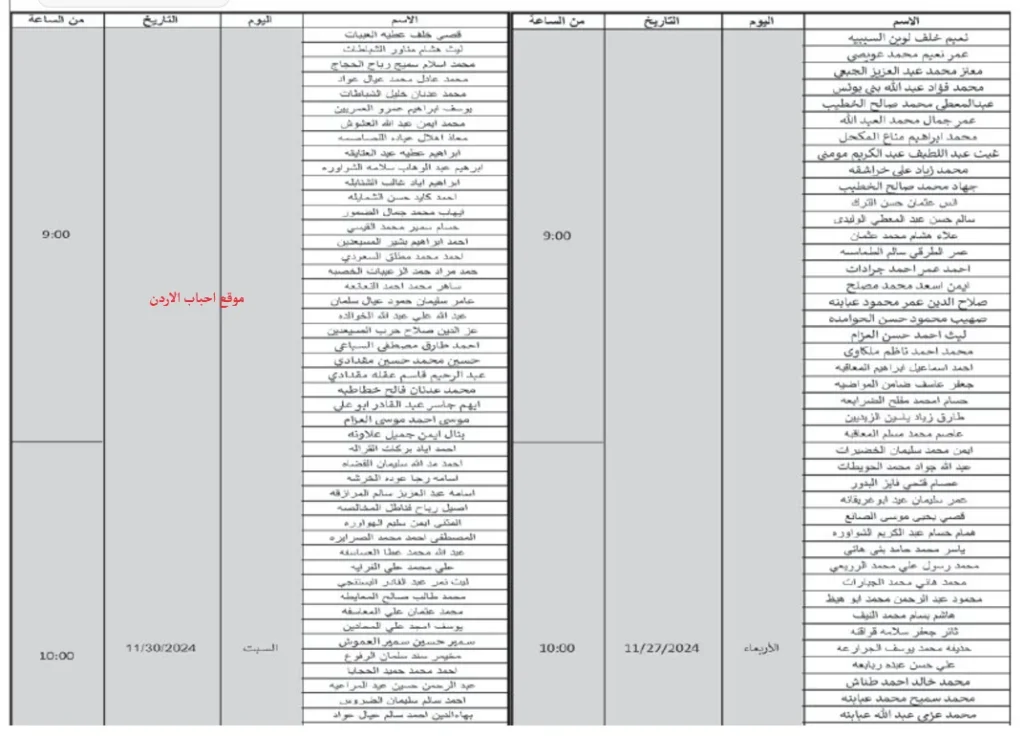 الاسم اليوم التاريخ من الساعة
نعيم خلف لوين السبيبه
عمر نعيم محمد عويصي
معتز محمد عبد العزيز الجبعي
محمد فؤاد عبد الله بني يونس
عبدالمعطي محمد صالح الخطيب
عمر جمال محمد العبد الله
محمد ابراهيم مناع المكحل
غيث عبد اللطيف عبد الكريم مومني
محمد زياد علي خراشقه
جهاد محمد صالح الخطيب
انس عثمان حسن الترك
سالم حسن عبد المعطي الوليدي
علاء هشام محمد عثمان
عمر الطرقي سالم الطماسه
احمد عمر احمد جرادات
ايمن اسعد محمد مصلح
صلاح الدين عمر محمود عبابنه
صهيب محمود حسن الحوامده
ليث احمد حسن العزام
محمد احمد ناظم ملكاوي
احمد اسماعيل ابراهيم المعاقبه
جعفر عاسف ضامن المواضيه
حسام امحمد مفلح الضرابعه
طارق زياد ياسين الزيديين
عاصم محمد مسلم المعاقبه
9:00
ايمن محمد سليمان الخضيرات
عبد الله جواد محمد الحويطات
عصام فتحي فايز البدور
عمر سليمان عيد ابوغريقانه
قصي يحيى موسى الصانع
همام حسام عبد الكريم الشواوره
ياسر محمد حامد بني هاني
محمد رسول علي محمد الربيعي
محمد هاني محمد الجبارات
محمود عبد الرحمن محمد ابو هيظ
هاشم بسام محمد النيف
ثائر جعفر سلامه قراقنه
حذيفه محمد يوسف الجرارعه
علي حسن عبده ربابعه
محمد خالد احمد طناش
محمد سميح محمد عبابنه
محمد عزي عبد الله عبابنه
الأربعاء 11/27/2024 10:00
الاسم اليوم التاريخ من الساعة
قصي خلف عطيه العبيات
ليث هشام مناور الشباطات
محمد اسلام سميح رباح الحجاج
محمد عادل محمد عيال عواد
محمد عدنان خليل الشباطات
يوسف ابراهيم عمرو العمريين
محمد ايمن عبد الله العشوش
ابراهيم عطيه عيد العتايقه
ابرهيم عبد الوهاب سلامه الشواوره
ابراهيم اياد غالب الشمايله
احمد كايد حسن الشمايله
ايهاب محمد جمال الضمور
حسام سمير محمد القيسي
احمد ابراهيم بشير المسيعدين
احمد محمد مطلق السعودي
حمد مراد حمد الزعبيات الخصبه
ساهر محمد احمد النعنعه
عامر سليمان حمود عيال سلمان
عبد الله علي عبد الله الخوالده
عز الدين صلاح حرب المسيعدين
احمد طارق مصطفى السباعي
حسين محمد حسين مقدادي
عبد الرحيم قاسم عقله مقدادي
محمد عدنان فالح خطاطبه
ايهم جاسر عبد القادر ابو علي
موسى احمد موسى العزام
يتال ايمن جميل علاونه
9:00
موقع احباب الاردن
احمد اياد بركات القراله
احمد مد الله سليمان القضاه
اسامه رجا عوده الخرشه
اسامه عبد العزيز سالم المرازقه
اصيل رباح قناطل المخالصه
المثنى ايمن سليم الهواوره
المصطفى احمد محمد الصرايره
عبد الله محمد عطا العساسفه
علي محمد علي القرايه
ليث نمر عبد القادر البستنجي
محمد طالب صالح المعايطه
محمد عثمان علي المعاسفه
يوسف امجد علي المحادين
سمور حسين سمور العموش
مخيمر سند سلمان الرفوع
احمد محمد حميد الحجايا
عبد الرحمن حسين عيد المراعيه
احمد سالم سليمان الضروس
بهاءالدين احمد سالم عيال عواد
السبت 11/30/2024 10:00